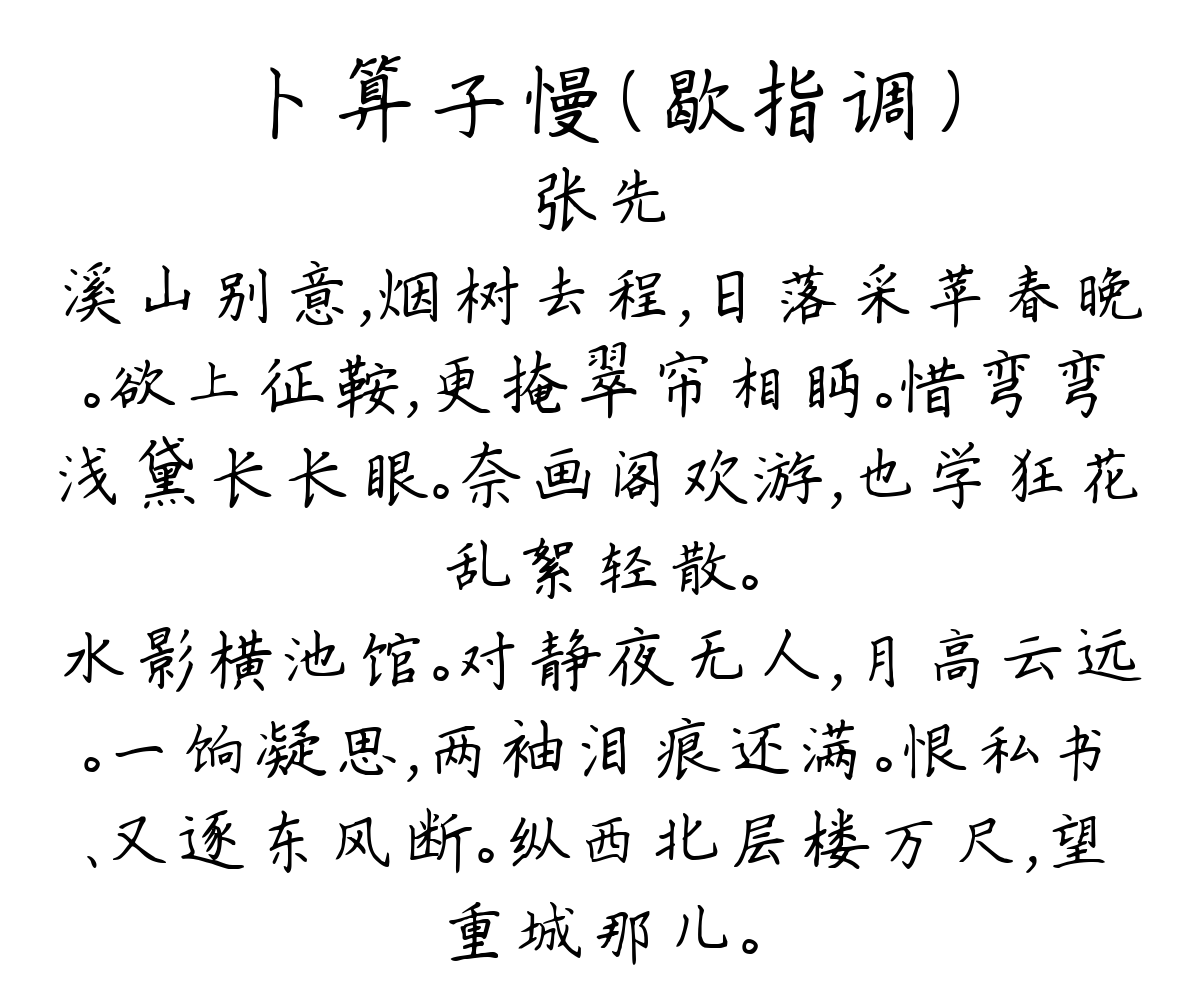 卜算子慢(歇指调)
张先
溪山别意,烟树去程,日落采苹春晚
。欲上征鞍,更掩翠帘相眄。惜弯弯
浅黛长长眼。奈画阁欢游,也学狂花
乱絮轻散。
水影横池馆。对静夜无人,月高云远
。一饷凝思,两袖泪痕还满。恨私书
、又逐东风断。纵西北层楼万尺,望
重城那儿。